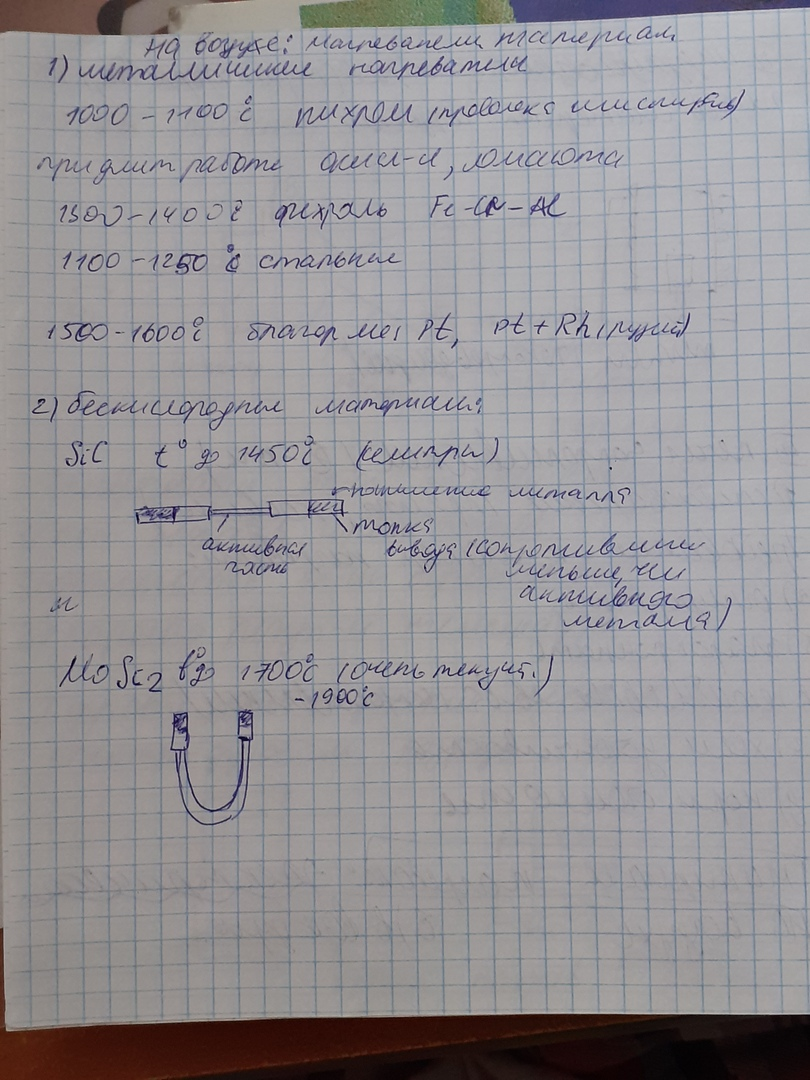 На воздухе: нагреватели материал
1) металлические нагреватели
1000-1100°C нихром (проволока или спираль)
при длит работе окисл-я, ломаются
1300-1400°C фехраль Fe-Cr-Al
1100-1250°C стальные
1500-1600°C благор мет Pt, Pt+Rh (родий)
2) бескислородные материалы:
SiC t° до 1450°C
напыление металла
активная
часть
вывода (сопротивление
меньше, чем
активного
металла)
и
MoSi2 t° до 1700°C (очень текуч.)
-1900°C